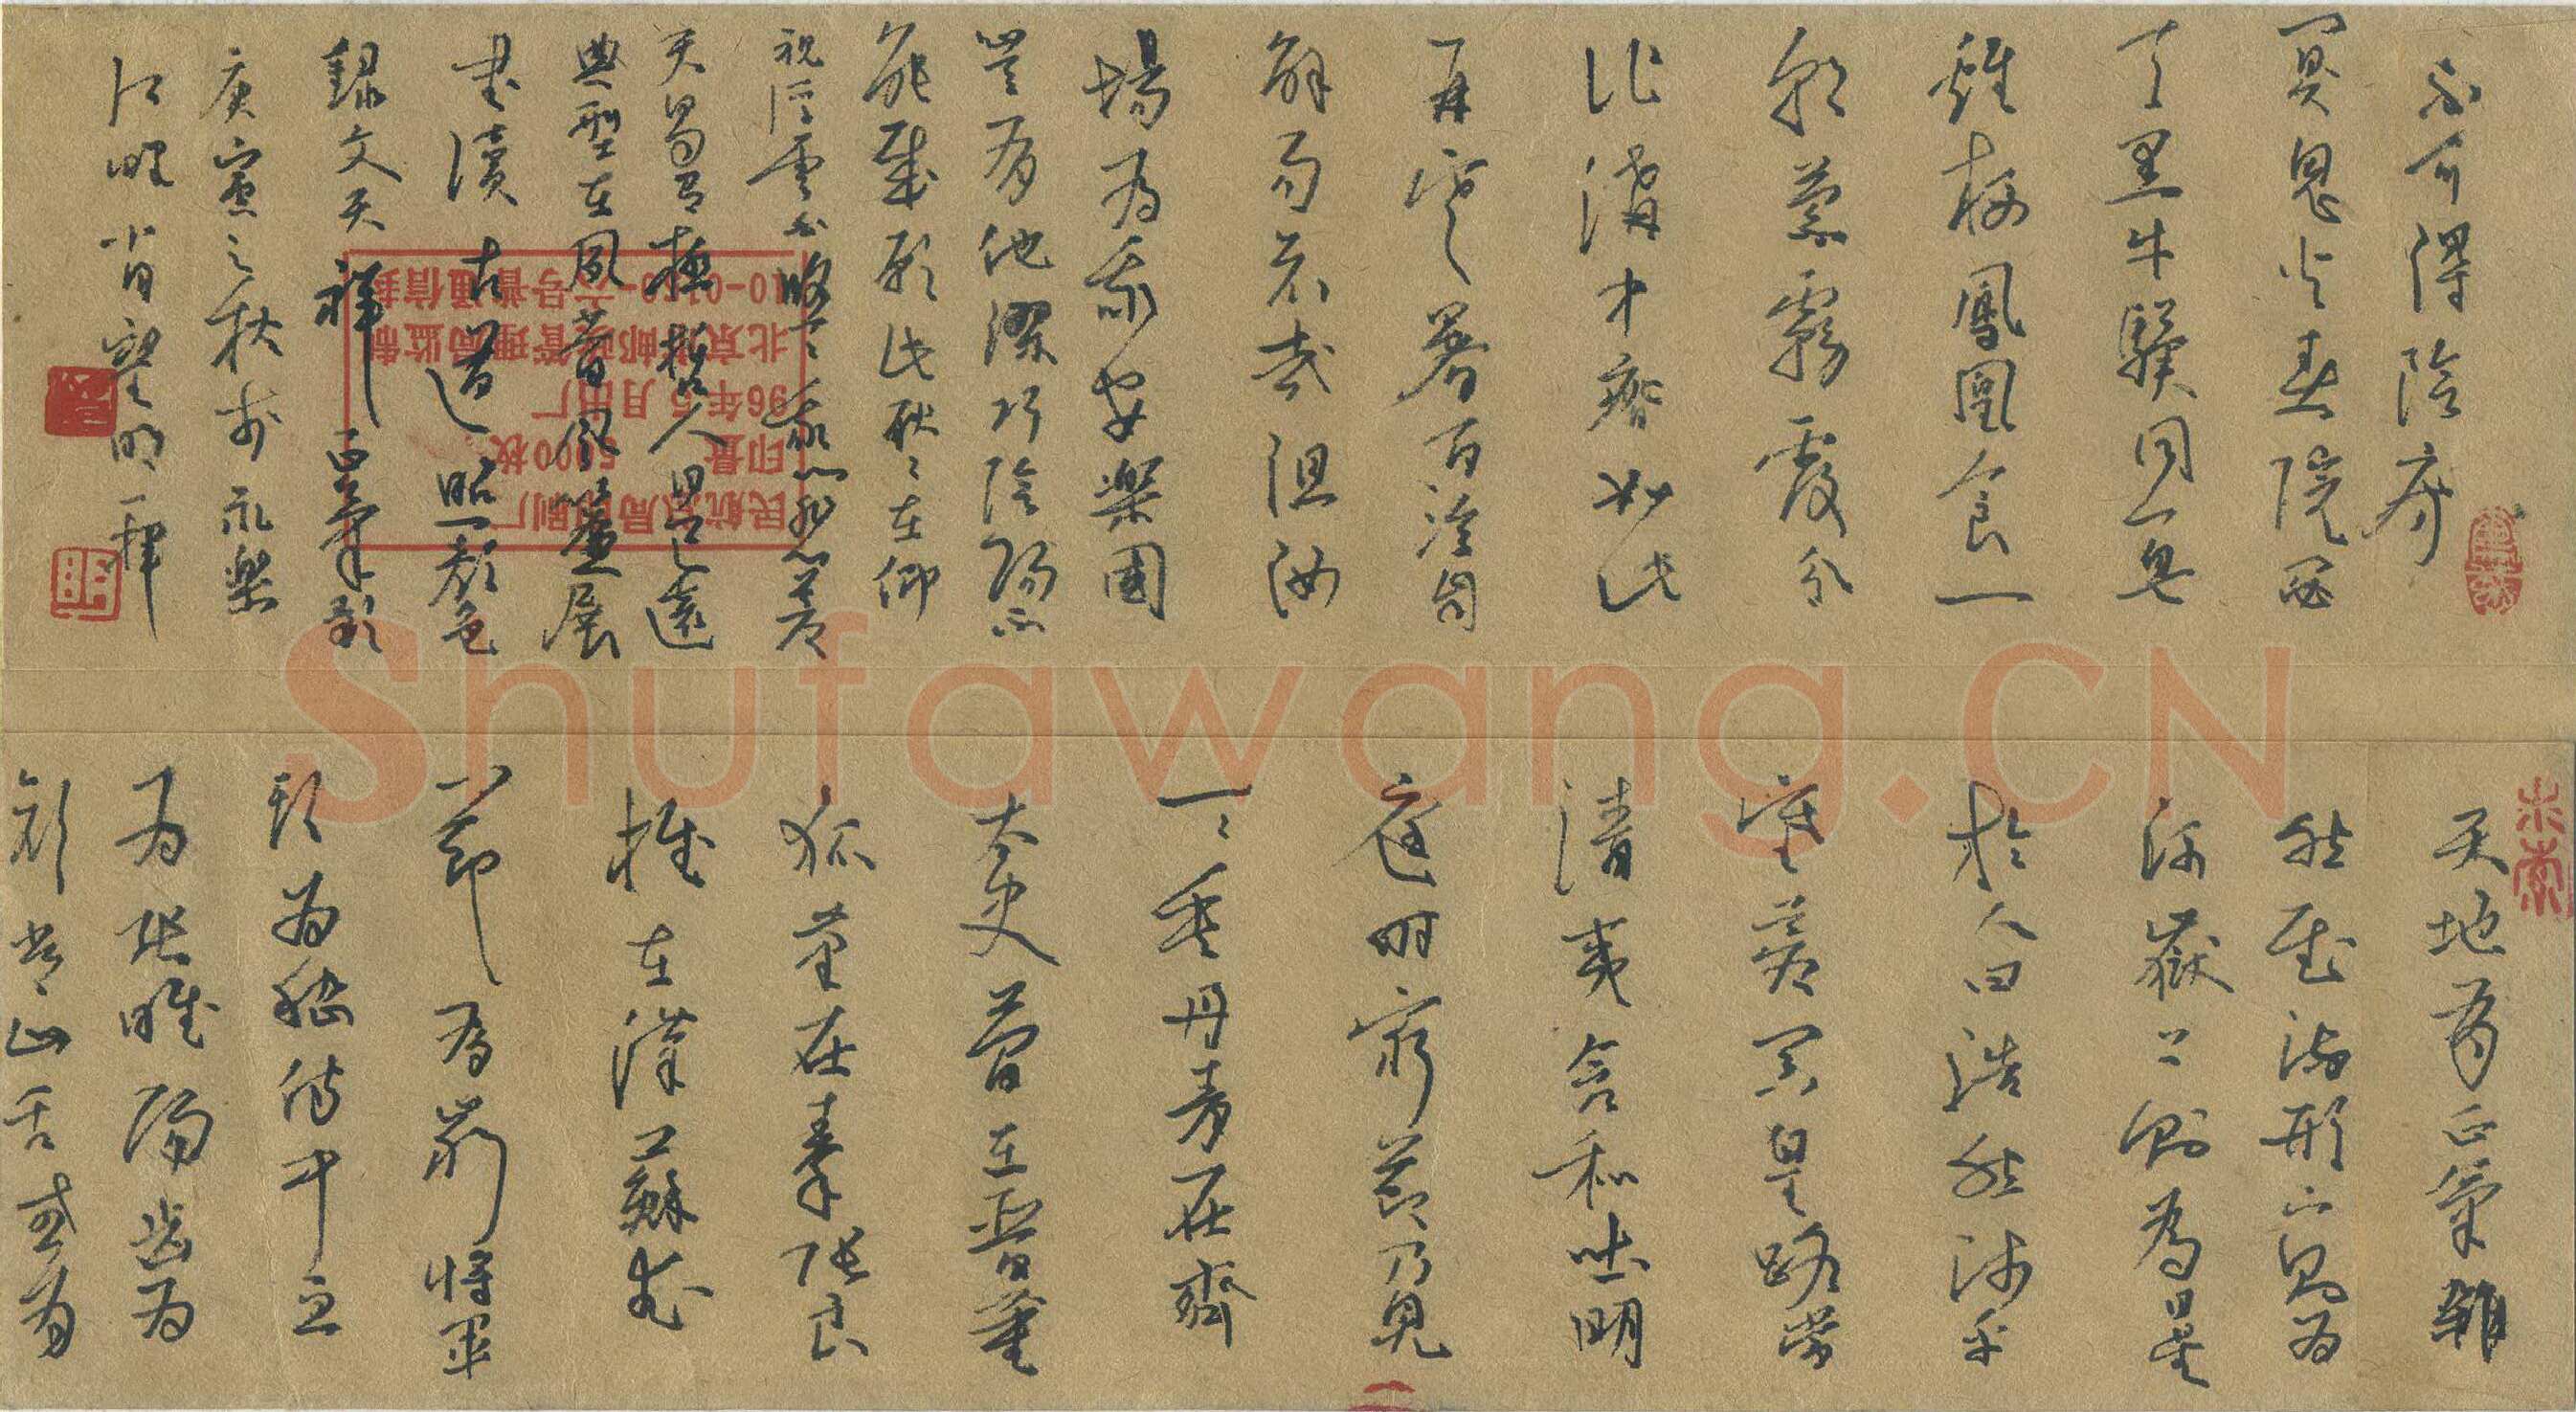 不可得陰房
闃鬼火春院閟
天黑牛驥同一皂
雞栖鳳凰食一
朝蒙霧露分
作溝中瘠如此
再寒暑百沴自
辟易哀哉沮洳
場為我安樂國
豈有他繆巧陰陽不
能賊顧此耿々在仰
視浮雲白悠々我心悲蒼
天曷有極哲人日已遠
典型在夙昔風簷展
書讀古道照顏色
錄文天祥正氣歌
庚寅之秋於永樂
天地有正氣雜
然賦流形下則為
河嶽上則為日星
於人曰浩然沛乎
塞蒼冥皇路當
清夷含和吐明
庭時窮節乃見
一々垂丹青在齊
太史簡在晉董
狐筆在秦張良
椎在漢蘇武
節為嚴將軍
頭為嵇侍中血
為張睢陽齒為
顏常山舌或為
印量 5000枚
96年5月出厂
北京邮政管理局监制
普通信封
Shufawang.CN